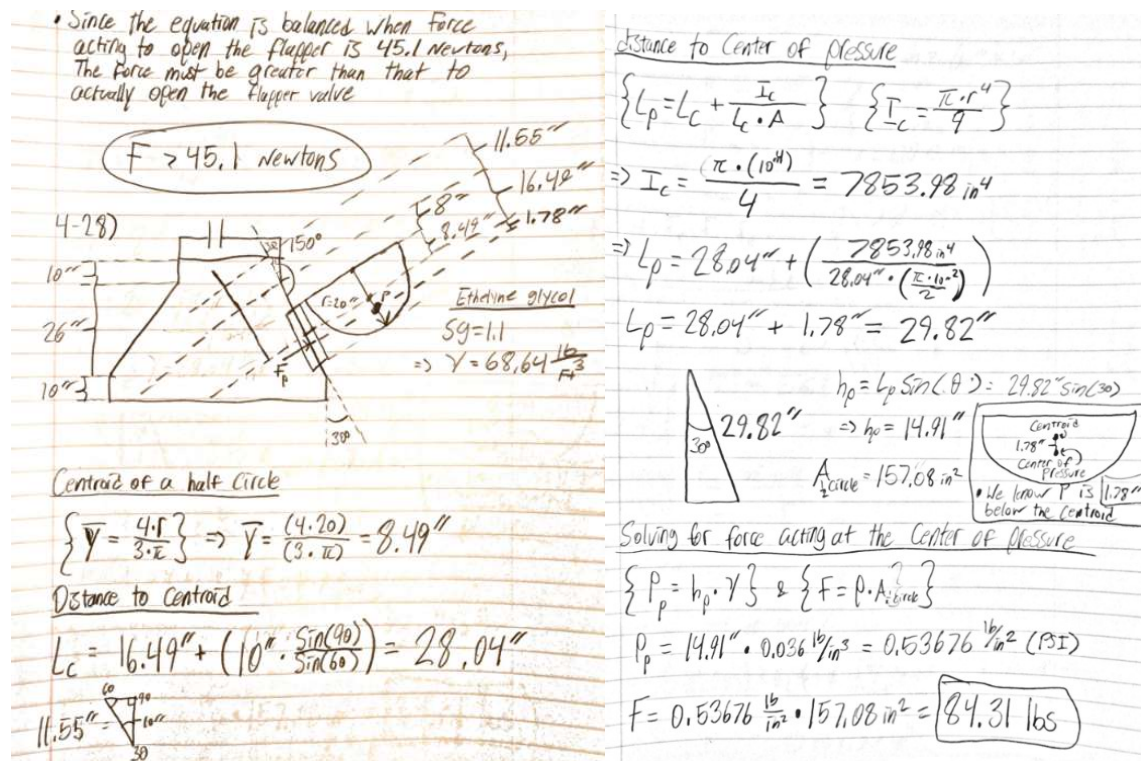 • Since the equation is balanced when force
acting to open the flapper is 45.1 Newtons,
The force must be greater than that to
actually open the flapper valve
F > 45.1 Newtons
4-28)
150°
11.55"
16.49"
1.78"
8"
8.49"
10"
26"
10"
r=20"
P
Fp
30°
Ethelyne glycol
Sg=1.1
=> γ = 68.64 lb/ft³
Centroid of a half circle
{ȳ = 4·r/3·π} => ȳ = (4·20)/(3·π) = 8.49"
Distance to Centroid
Lc = 16.49" + (10" · Sin(90)/Sin(60)) = 28.04"
60
90
11.55"
10"
30
distance to Center of pressure
{Lp = Lc + Ic/Lc·A} {Ic = π·r⁴/4}
=> Ic = π·(10⁴)/4 = 7853.98 in⁴
=> Lp = 28.04" + (7853.98 in⁴/28.04"·(π·10²/2))
Lp = 28.04" + 1.78" = 29.82"
30°
29.82"
hp = Lp Sin(θ) = 29.82" Sin(30)
=> hp = 14.91"
A½circle = 157.08 in²
Centroid
1.78"
Center of
Pressure
• We know P is 1.78"
below the Centroid
Solving for force acting at the Center of pressure
{Pp = hp·γ} & {F = P·A½circle}
Pp = 14.91" · 0.036 lb/in³ = 0.53676 lb/in² (PSI)
F = 0.53676 lb/in² · 157.08 in² = 84.31 lbs